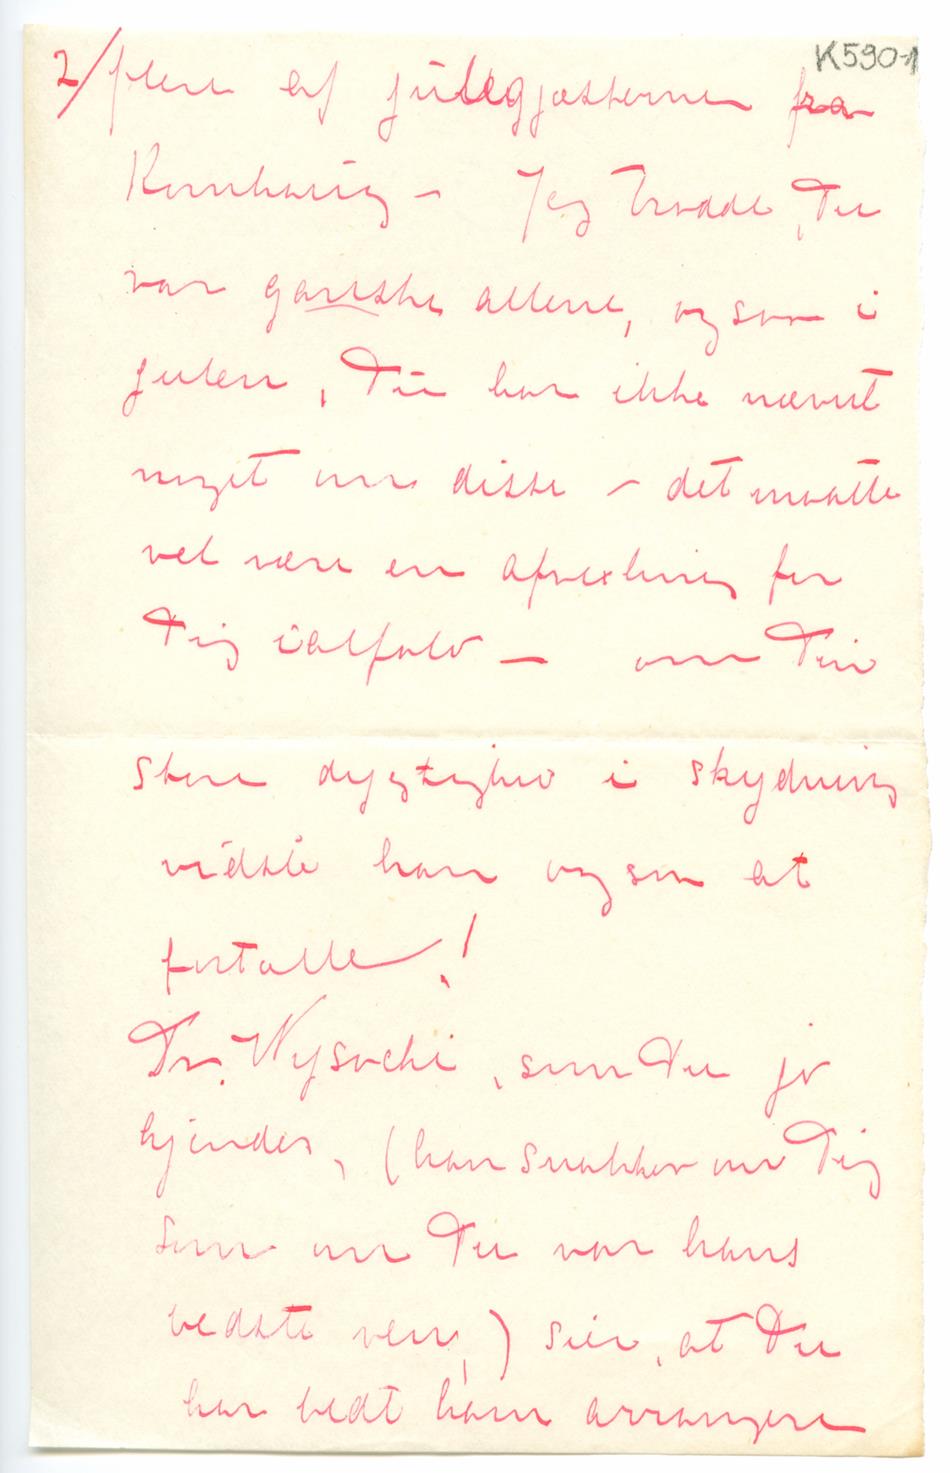 K590-1
2/ flere af julegjæsterne fra
Kornhaug – Jeg trodde, Du
var ganske allene, ogsaa i
julen, Du har ikke nævnt
noget om disse – det maatte
vel være en afvexling for
Dig ialfald – om Din
store dygtighed i skydning
vidste han ogsaa at
fortælle!
Dr. Wysocki, som Du jo
kjender, (han snakker om Dig
som om Du var hans
bedste ven,) sier, at Du
har bedt ham arrangere